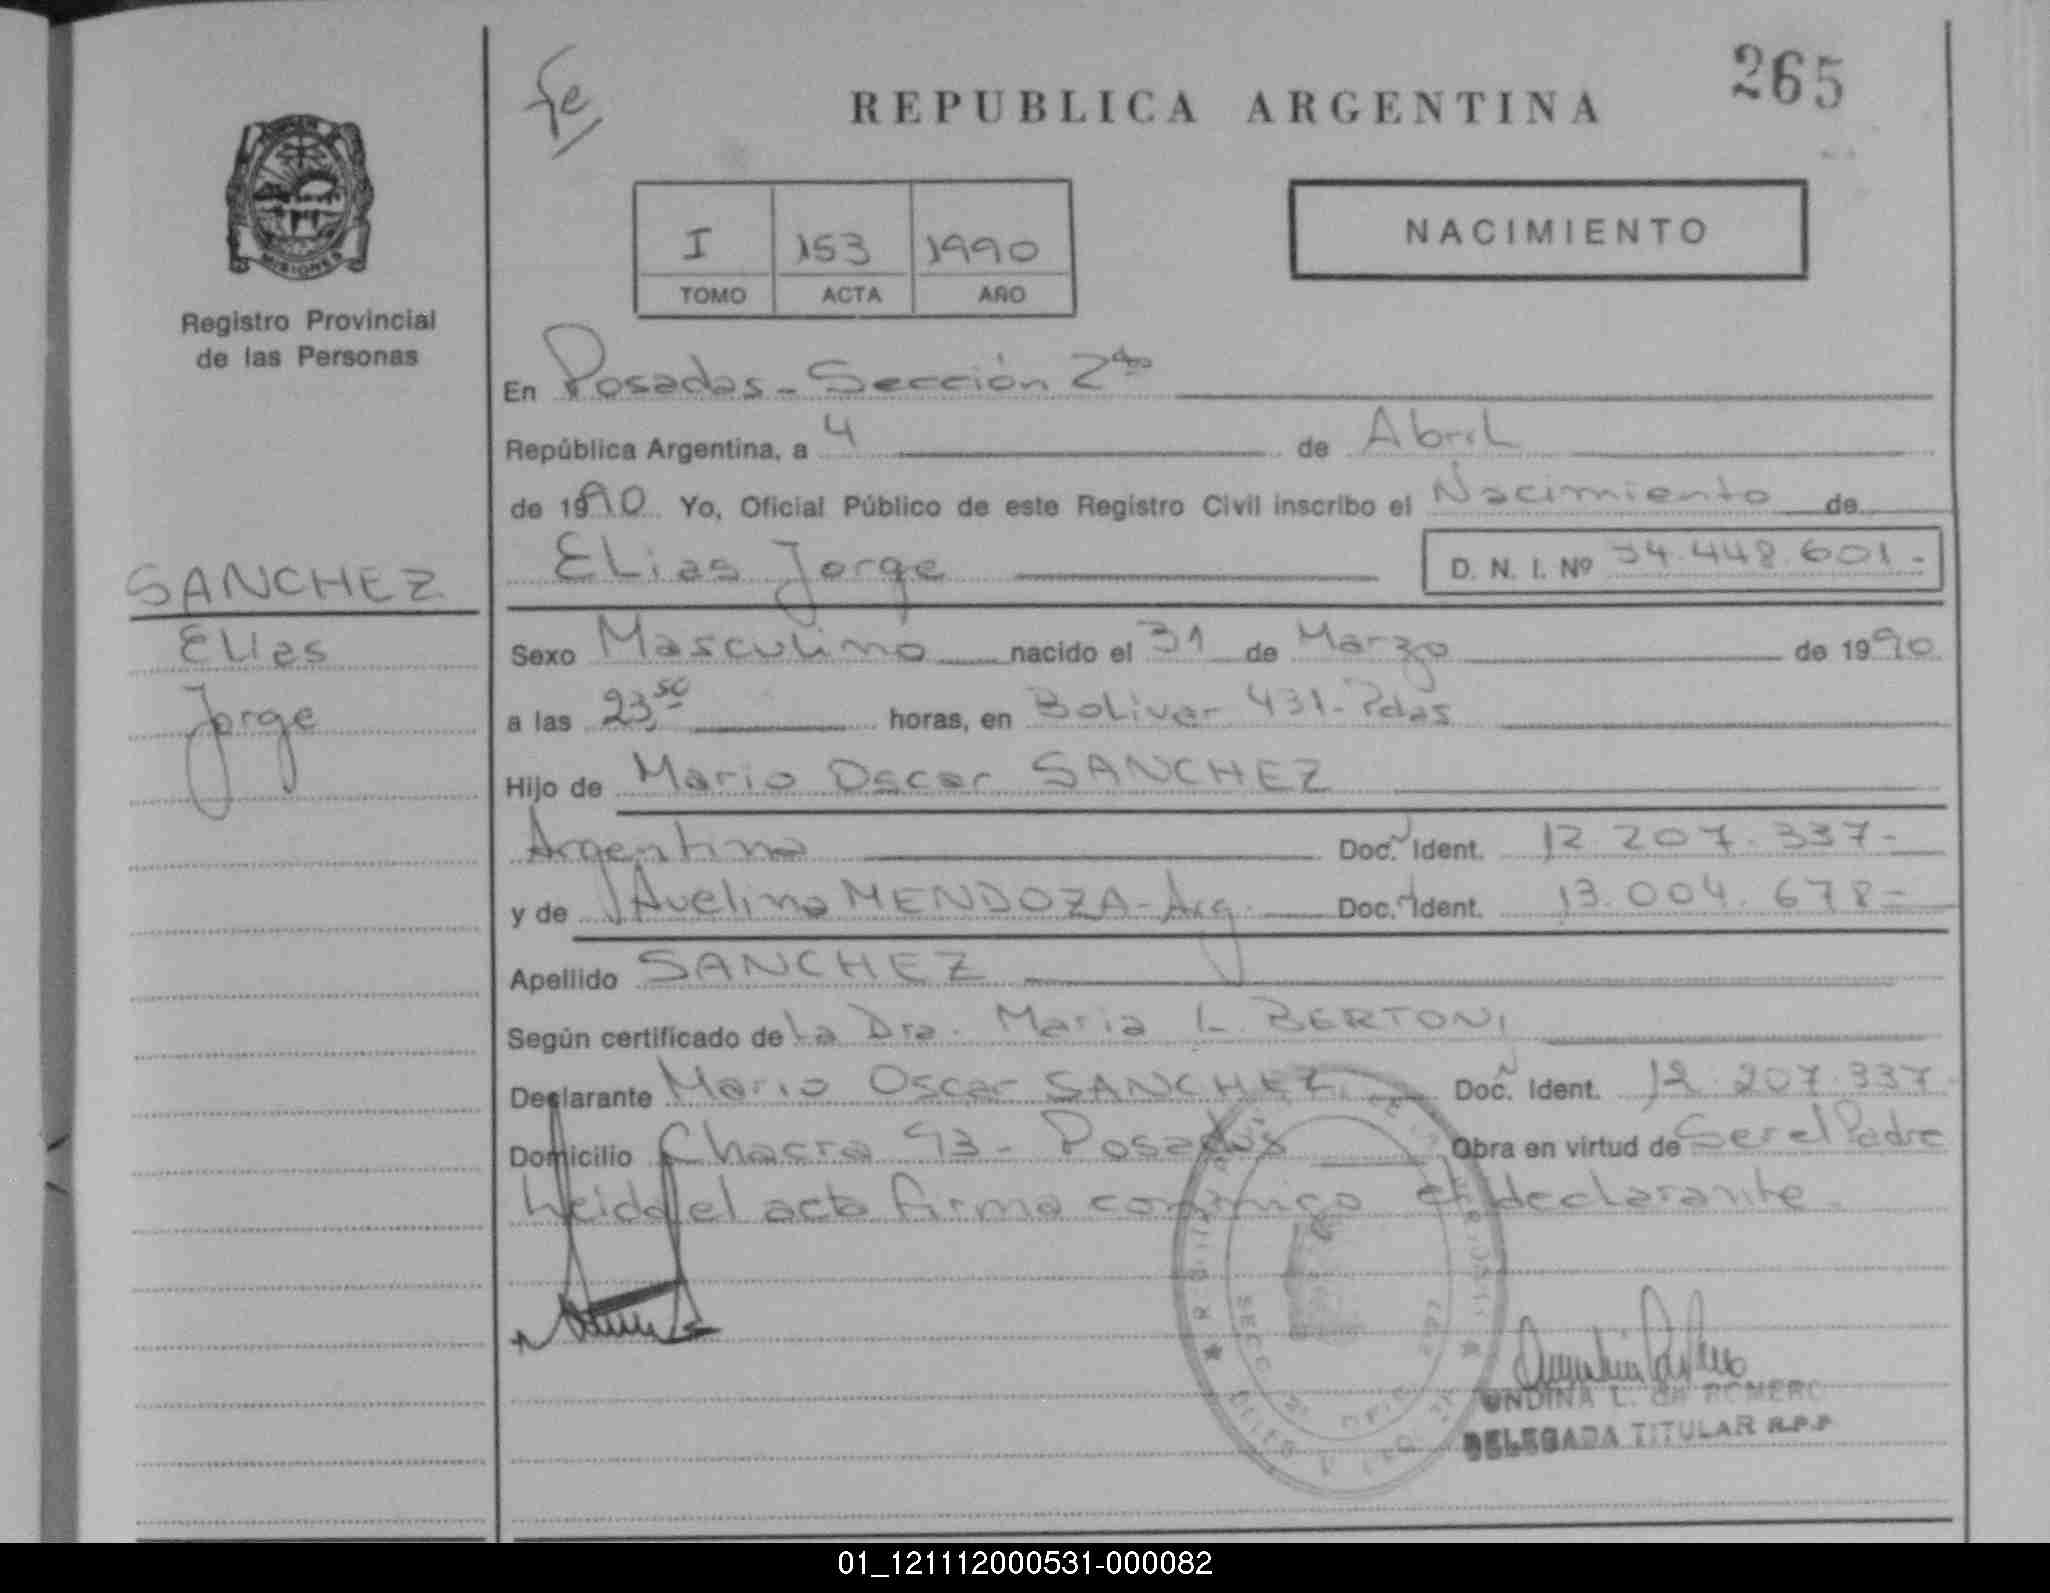 fe
265
REPUBLICA ARGENTINA
MISIONES
Registro Provincial
de las Personas
I 153 1990
TOMO ACTA AÑO
NACIMIENTO
En Posadas - Sección 2da
República Argentina, a 4 de Abril
de 1990 Yo, Oficial Público de este Registro Civil inscribo el Nacimiento de
Elias Jorge D. N. I. Nº 34.448.601.-
SANCHEZ
Elias
Jorge
Sexo Masculino nacido el 31 de Marzo de 1990
a las 23,50 horas, en Bolivar 431 - Pdas
Hijo de Mario Oscar SANCHEZ
Argentino Doc. Ident. 12.207.337-
y de Avelina MENDOZA - Arg. Doc. Ident. 13.004.678-
Apellido SANCHEZ
Según certificado de la Dra. Maria L. BERTONI
Declarante Mario Oscar SANCHEZ Doc. Ident. 12.207.337
Domicilio Chacra 93 - Posadas Obra en virtud de Ser el Padre
Leida el acta firma conmigo el declarante.
UNDINA L. de ROMERO
DELEGADA TITULAR R.P.P
01_121112000531-000082